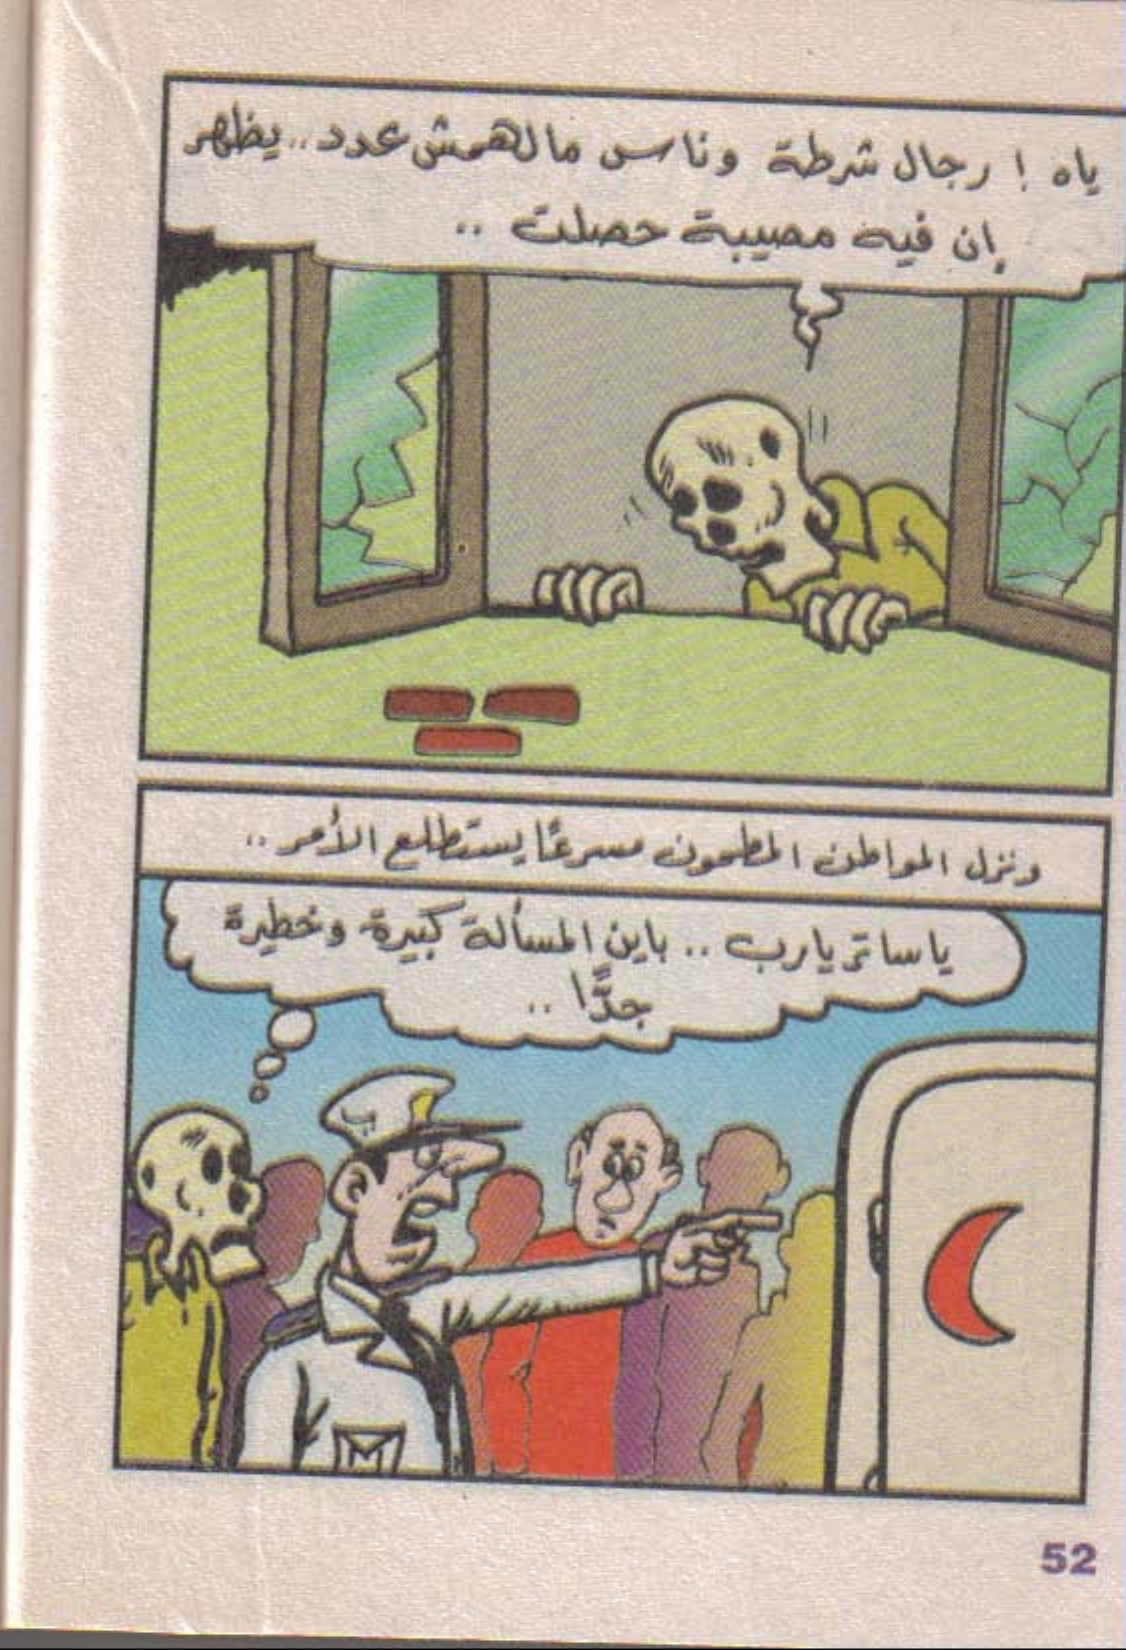 ياه ! رجال شرطة وناس مالهمش عدد.. يظهر
إن فيه مصيبة حصلت ..
ونزل المواطن المطحون مسرعًا يستطلع الأمر ..
ياساتر يارب .. باين المسألة كبيرة وخطيرة
جدًّا ..
52